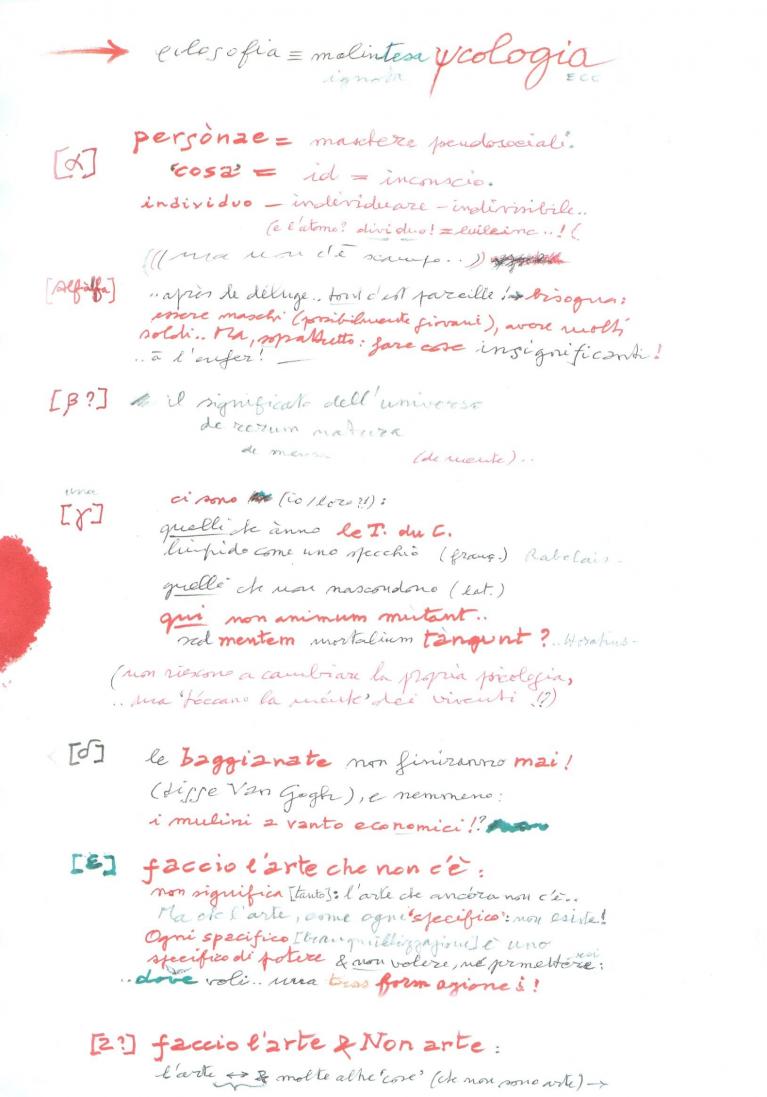 filosofia ≡ malintesa ψcologia
ignota ECC
[α] persònae = maschere pseudosociali.
'cosa' = id = inconscio.
individuo – individuare – indivisibile..
(e l'atomo? dividuo! = ..!(
((ma non c'è scampo..))
[Alfalfa] ..après le déluge.. tout c'est pareille! → bisogna:
essere maschi (possibilmente giovani), avere molti
soldi.. Ma, soprattutto: fare cose insignificanti!
..à l'enfer! —
[β?] il significato dell'universo
de rerum natura
de mensa (de mente)..
[γ] ci sono (io/loro?!):
quelli che ànno le T. du C.
limpido come uno specchio (franç.) Rabelais.
quelli che non nascondono (lat.)
qui non animum mutant..
sed mentem mortalium tàngunt? ..Horatius-
(non riescono a cambiare la propria psicologia,
..ma 'tòccano la ménte' dei viventi !?)
[δ] le baggianate non finiranno mai!
(disse Van Gogh), e nemmeno:
i mulini a vanto economici!?
[ε] faccio l'arte che non c'è:
non significa [tanto]: l'arte che ancóra non c'è..
Ma che l'arte, come ogni 'specifico': non esiste!
Ogni specifico è uno
specifico di potere & non volere, né permettere:
..dove voli.. una tras form azione i!
[2?] faccio l'arte & Non arte:
l'arte ↔ & molte altre 'cose' (che non sono arte) →